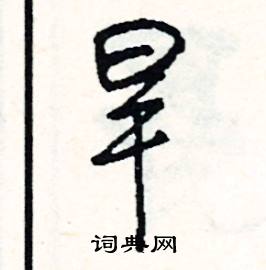 旱
词典网